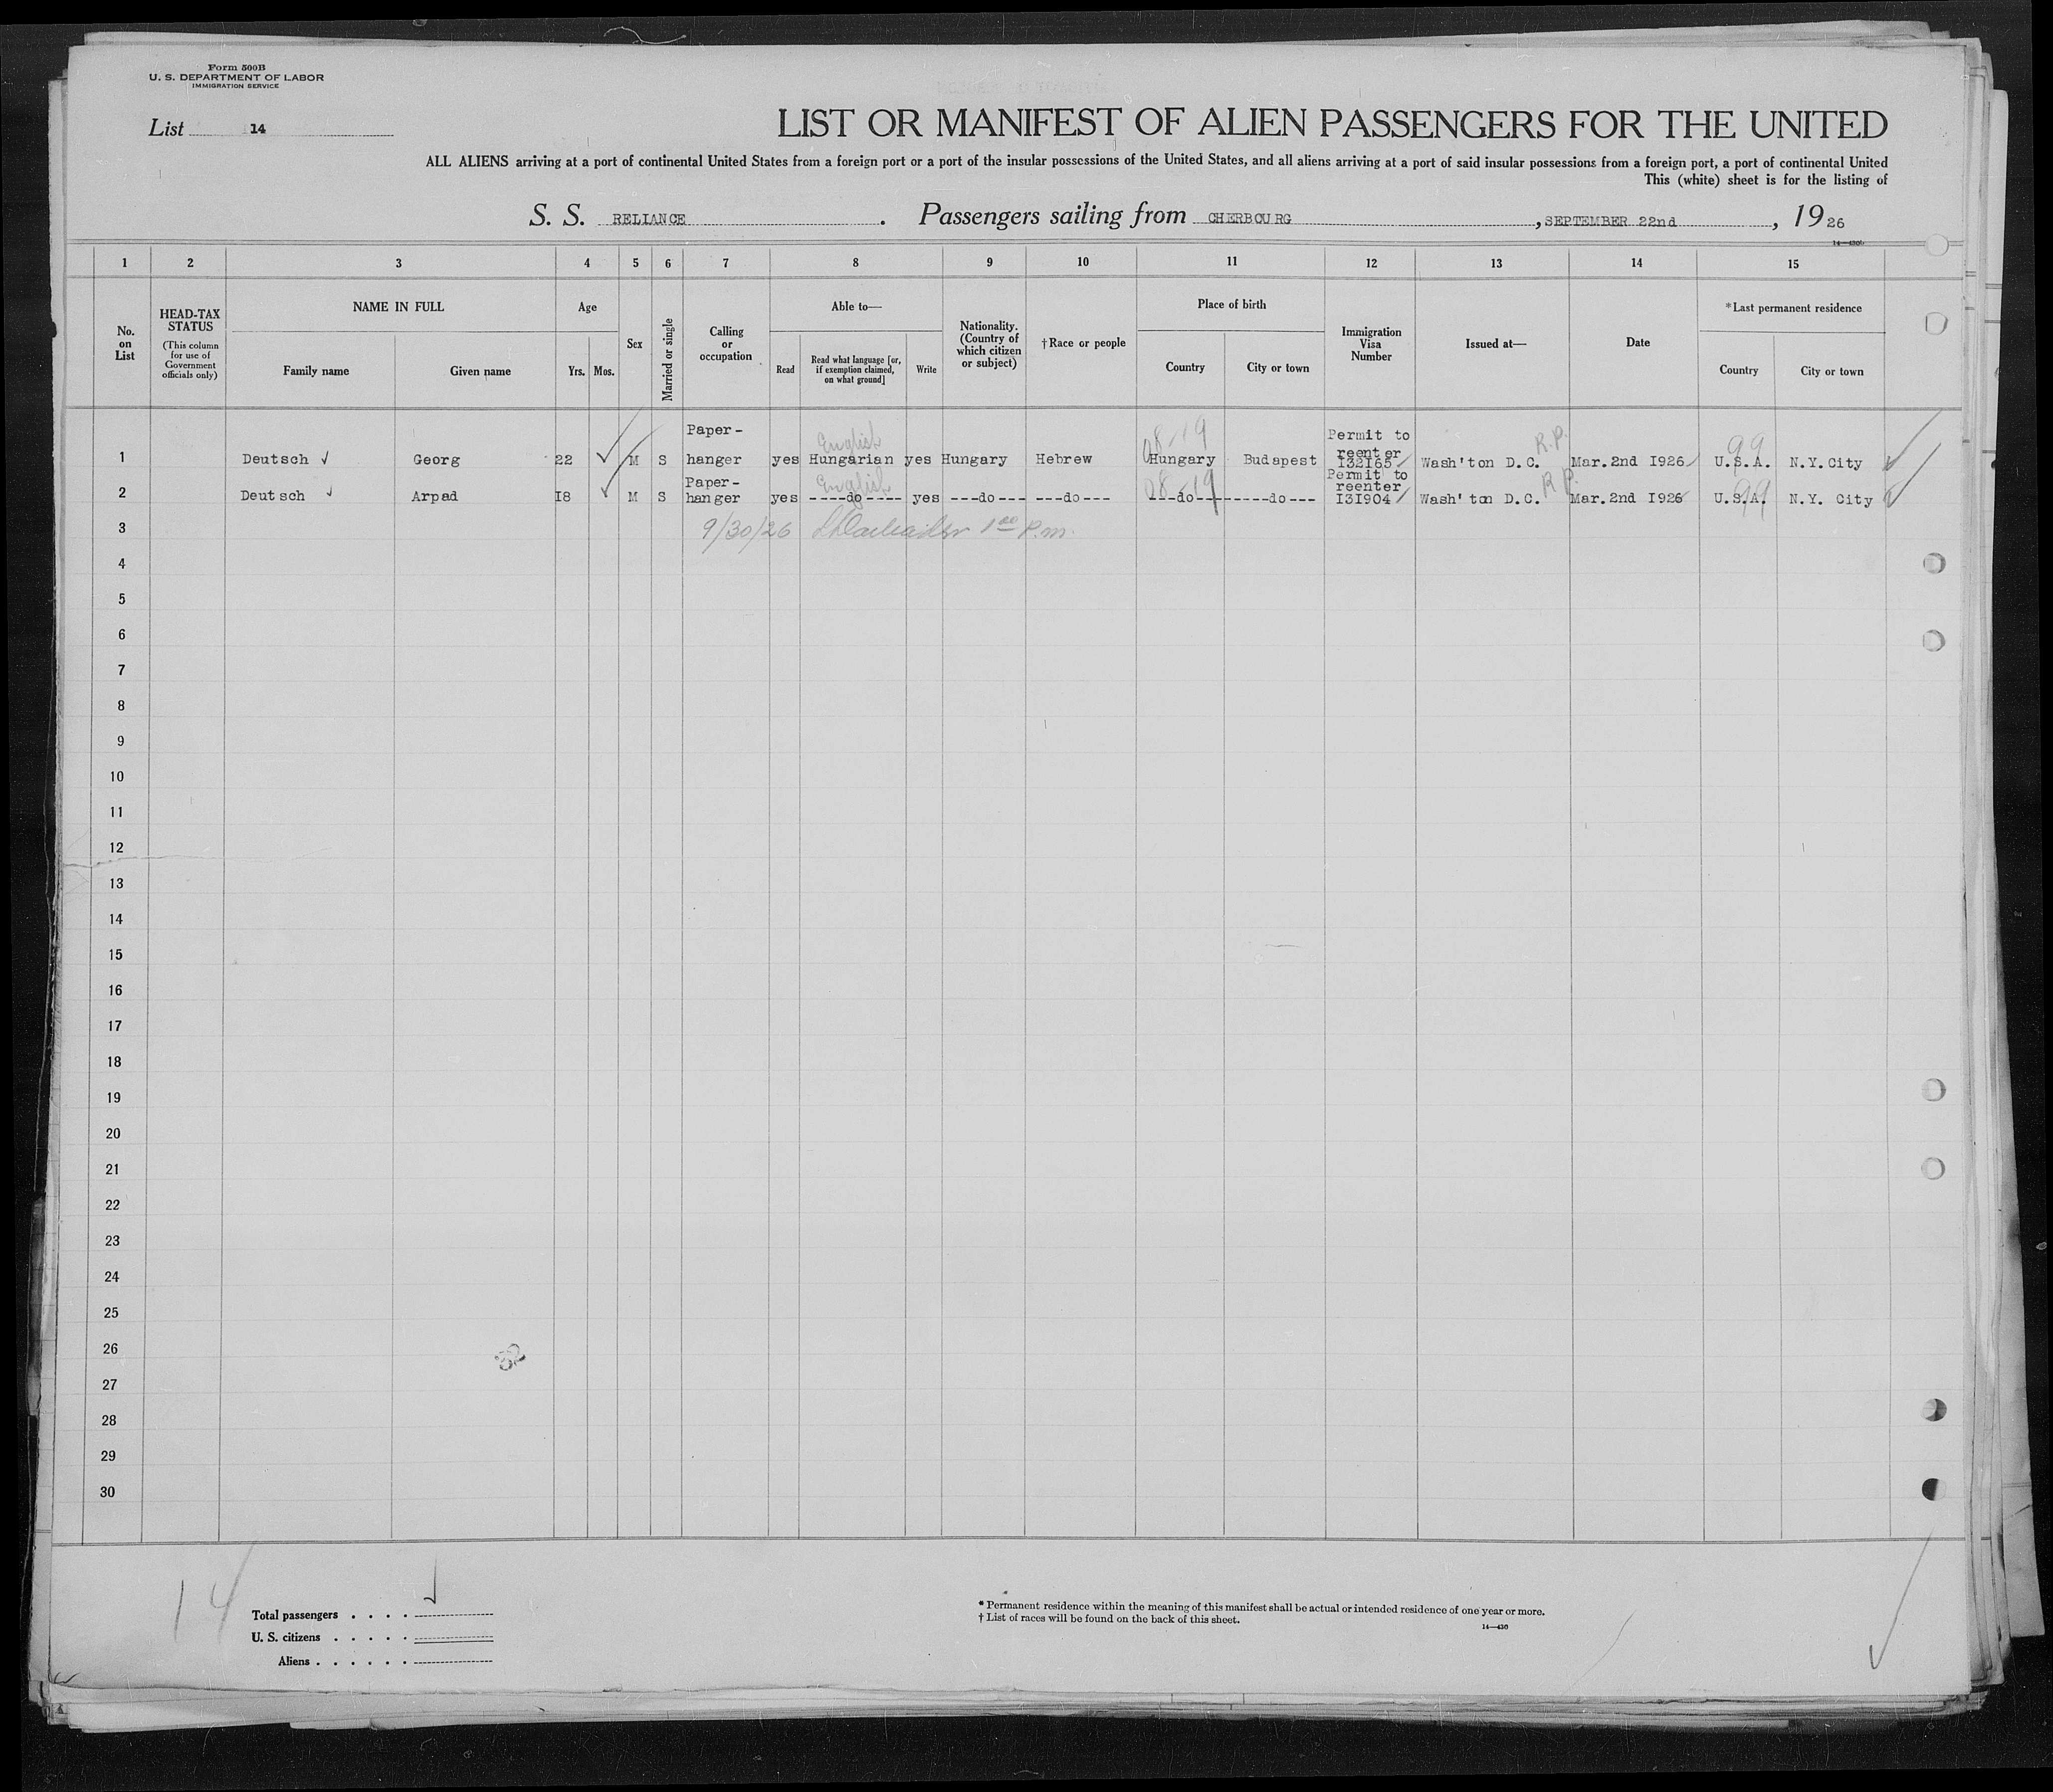 Form 500B
U. S. DEPARTMENT OF LABOR
IMMIGRATION SERVICE
List 14
LIST OR MANIFEST OF ALIEN PASSENGERS FOR THE UNITED
ALL ALIENS arriving at a port of continental United States from a foreign port or a port of the insular possessions of the United States, and all aliens arriving at a port of said insular possessions from a foreign port, a port of continental United
This (white) sheet is for the listing of
S. S. RELIANCE . Passengers sailing from CHERBOURG , SEPTEMBER 22nd , 1926
1 2 3 4 5 6 7 8 9 10 11 12 13 14 15
No. on List
HEAD-TAX STATUS
(This column for use of Government officials only)
NAME IN FULL
Family name Given name
Age
Yrs. Mos.
Sex
Married or single
Calling or occupation
Able to—
Read
Read what language [or, if exemption claimed, on what ground]
Write
Nationality. (Country of which citizen or subject)
†Race or people
Place of birth
Country City or town
Immigration Visa Number
Issued at—
Date
*Last permanent residence
Country City or town
1 Deutsch ✓ Georg 22 ✓ M S Paper-hanger yes English Hungarian yes Hungary Hebrew 08-19 Hungary Budapest Permit to reenter I32I65 Wash'ton D.C. R.P. Mar.2nd I926 99 U.S.A. N.Y.City
2 Deutsch ✓ Arpad I8 ✓ M S Paper-hanger yes English ----do---- yes ---do--- ---do--- 08-19 ---do--- -----do--- Permit to reenter I3I904 Wash'ton D.C. R P. Mar.2nd I926 99 U.S.A. N.Y. City
3 9/30/26 1 00 P.m.
4
5
6
7
8
9
10
11
12
13
14
15
16
17
18
19
20
21
22
23
24
25
26
32
27
28
29
30
14
Total passengers . . . .
U. S. citizens . . . . .
Aliens . . . . . .
* Permanent residence within the meaning of this manifest shall be actual or intended residence of one year or more.
† List of races will be found on the back of this sheet.
14—430